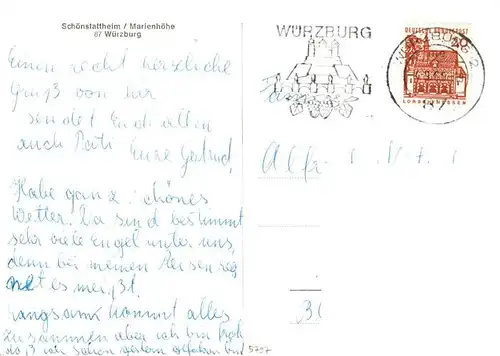 Schönstattheim / Marienhöhe
87 Würzburg
Einen recht herzliche
Gruß von hier
sendet Euch allen
auch Pati Eure Gertrud,
Habe ganz schönes
Wetter. Da sind bestimmt
sehr viele Engel unter uns,
denn bei meinen Reisen reg
net es meist.
Langsam kommt alles
zusammen aber ich bin froh
daß ich schon gestern gefahren bin
5757
WÜRZBURG
DEUTSCHE BUNDESPOST
LORSCH/HESSEN
Alfr